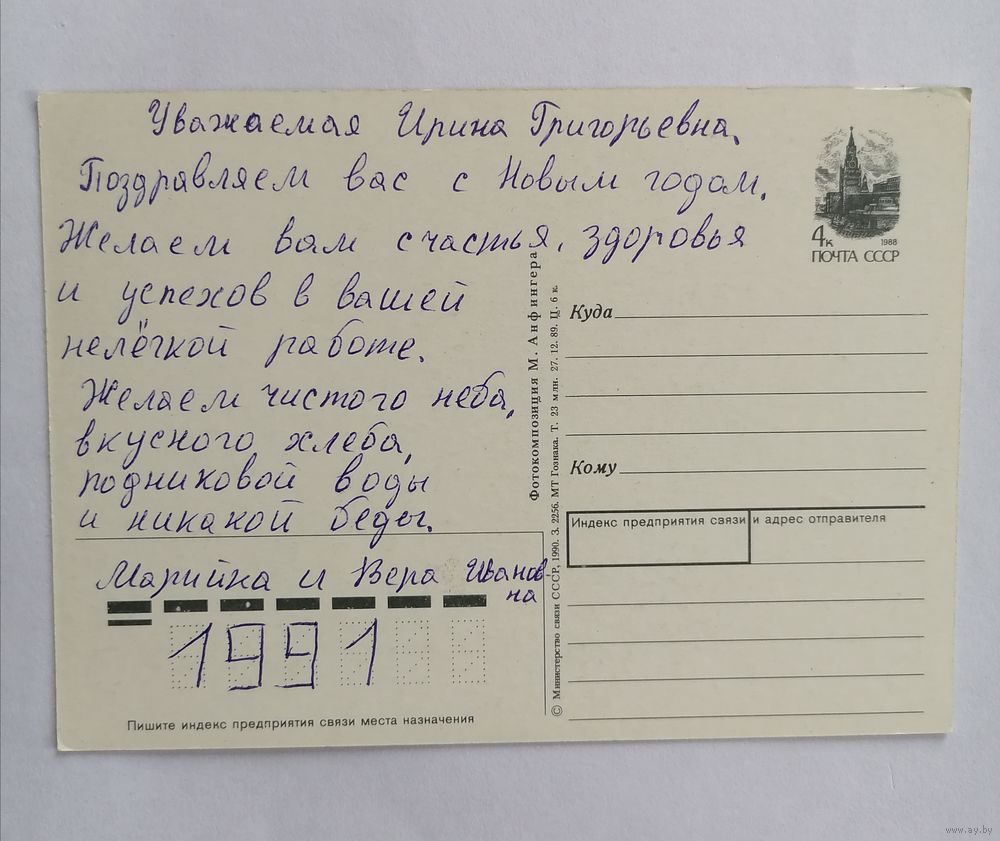 Уважаемая Ирина Григорьевна,
Поздравляем вас с Новым годом.
Желаем вам счастья, здоровья
и успехов в вашей
нелёгкой работе.
Желаем чистого неба,
вкусного хлеба,
родниковой воды
и никакой беды.
Марийка и Вера Иванов-
на
1991
Пишите индекс предприятия связи места назначения
Фотокомпозиция М. Анфингера
© Министерство связи СССР, 1990. З. 2256. МТ Гознака. Т. 23 млн. 27. 12. 89. Ц. 6 к.
4к
1988
ПОЧТА СССР
Куда
Кому
Индекс предприятия связи и адрес отправителя
www.ay.by